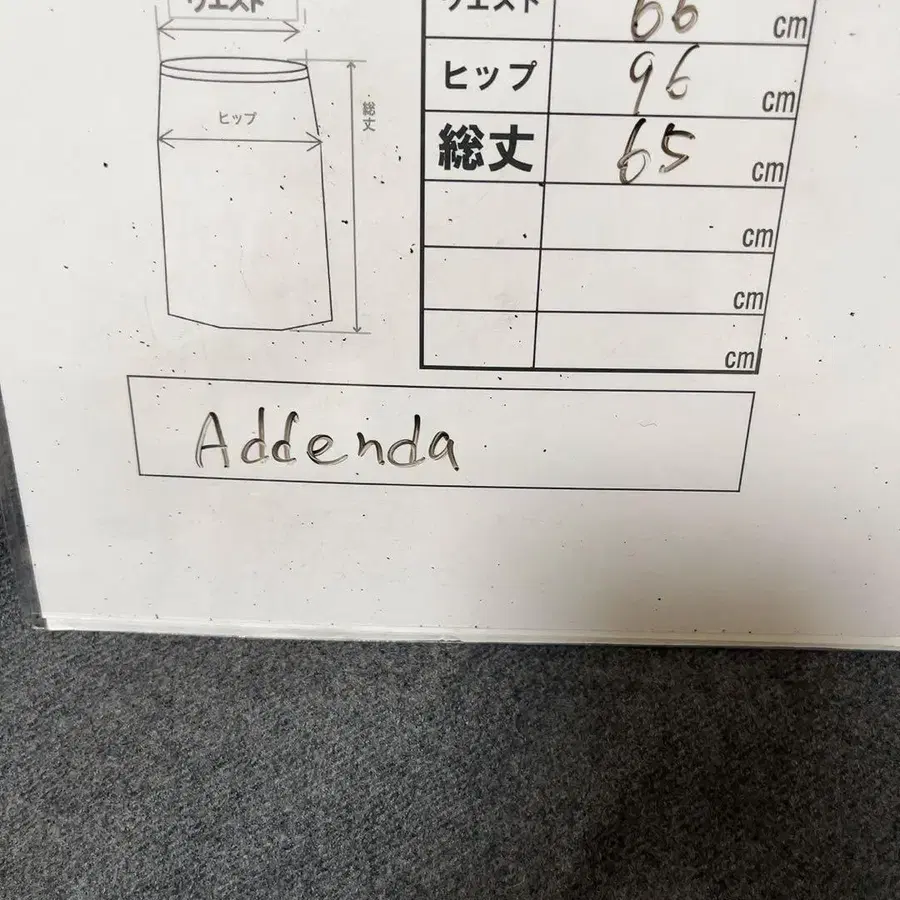 ウエスト
ヒップ
総丈
ウエスト 66 cm
ヒップ 96 cm
総丈 65 cm
cm
cm
cm
Addenda